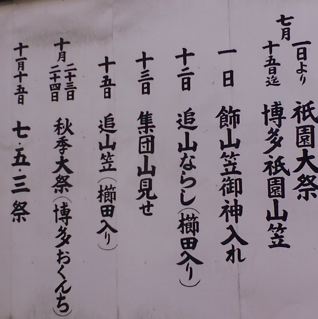 祇園大祭
七月 一日より 十五日迄 博多祇園山笠
一日 飾山笠御神入れ
十二日 追山ならし(櫛田入り)
十三日 集団山見せ
十五日 追山笠(櫛田入り)
十月 二十三日 二十四日 秋季大祭(博多おくんち)
十一月十五日 七・五・三祭